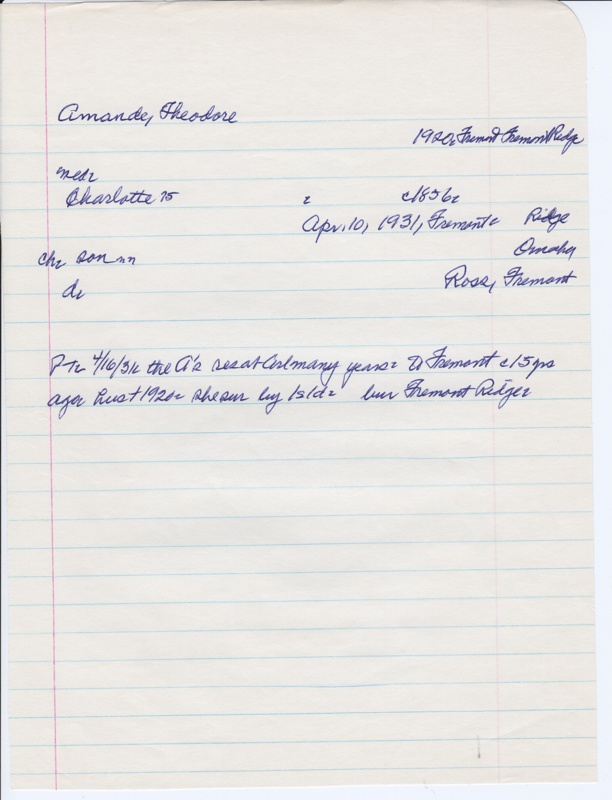 Amande, Theodore
1920, Fremont Fremont Ridge
med:
Charlotte 75 : c1856:
Apr. 10, 1931, Fremont: Ridge
ch: son nn Omaha
d: Rose, Fremont
PT: 4/16/31: the A's res at Arl many years: To Fremont c15 yrs
ago: hust 1920: she sur by 1s1d: bur Fremont Ridge: